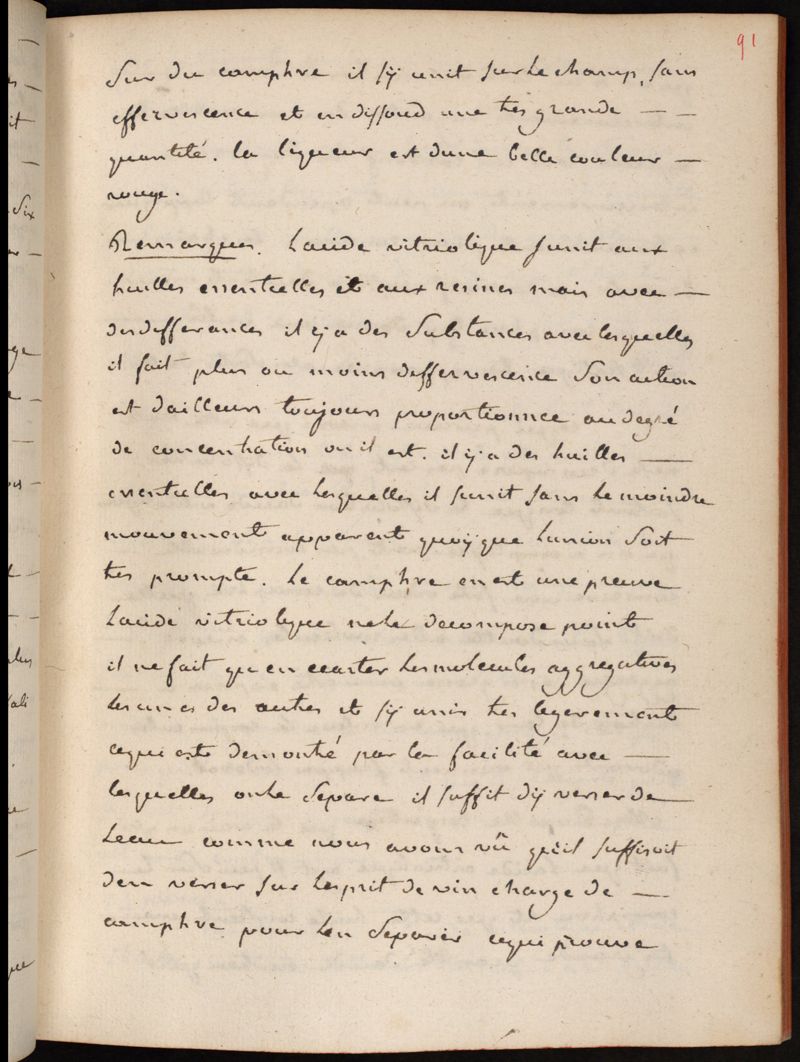 91
Sur du camphre il s'ÿ unit sur le champ, sans
effervescence et en dissoud une tres grande — —
quantité. la liqueur est dune belle couleur —
rouge.
Remarques. Lacide vitriolique sunit aux
huilles essentielles et aux resines mais avec —
des differances il ÿ a des Substances avec lesquelles
il fait plus ou moins deffervescence Son action
est dailleurs toujours proportionnee au degré
de concentration ou il est. il ÿ a des huilles —
essentielles avec lesquelles il sunit sans le moindre
mouvement apparent quoÿ que lunion Soit
tres prompte. Le camphre en est une preuve
Lacide vitriolique ne le decompose point
il ne fait qu en ecarter les molecules aggregatives
les unes des autres et sÿ unir tres legerement
ce qui est demontré par la facilité avec —
lesquelles on le Separe il suffit dÿ verser de
Leau comme nous avons vû quil suffisoit
den verser sur lesprit de vin charge de —
camphre pour len Separer ce qui prouve